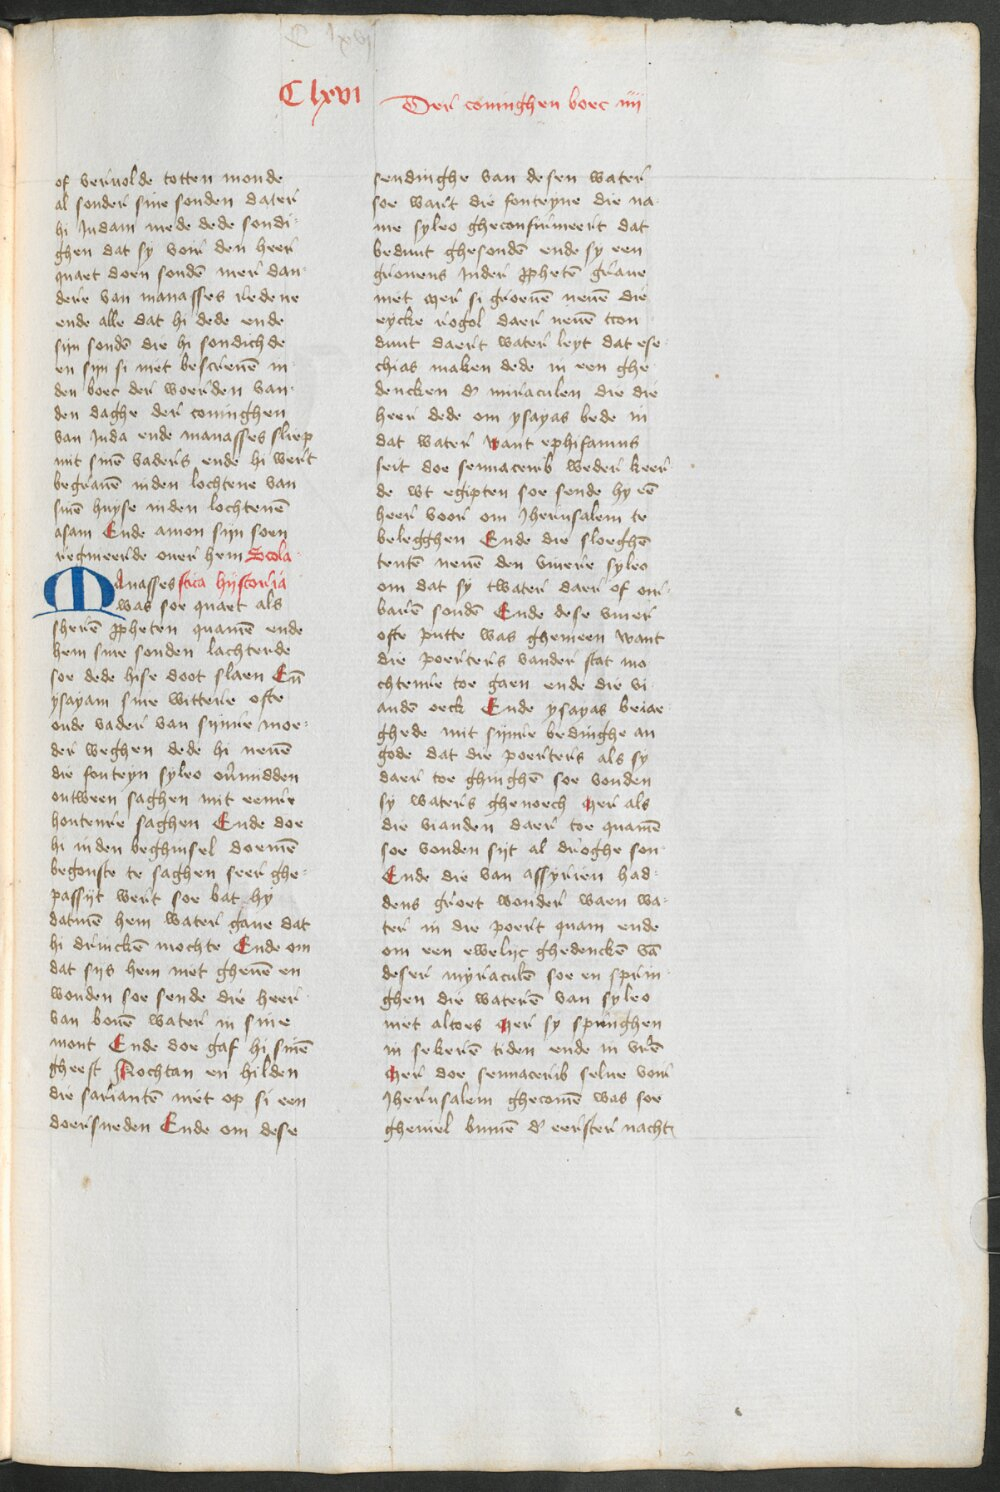 C lxvi
Clxvi
Der coninghen boec iiii
of vervolde totten monde
al sonder sine sonden dater
hi Judam mede dede sondi-
ghen dat sy voir den heer
quaet doen sondē mer dan-
dere van manasses redene
ende alle dat hi dede ende
sijn sondē die hi sondichde
en sijn si niet bescreuē in
den boec der woerden van
den daghe der coninghen
van Juda ende manasses sliep
mit sinē vaders ende hi wert
begrauē inden lochtene van
sinē huyse inden lochtenē
asam Ende amon sijn soen
regneerde ouer hem Scola-
Manasses stica hijstoria
was soe quaet als
sherē ꝓphetēn quamē ende
hem sine sonden lachterde
soe dede hise doot slaen En̄
ysayam sine wittere ofte
oude vader van sijnre moe-
der weghen dede hi neuē
die fonteyn syleo ou̅midden
ontween saghen mit eenre
houtenre saghen Ende doe
hi inden beghinsel doemē
begonste te saghen seer ghe-
passijt wert soe bat hy
datmē hem water gaue dat
hi drinckē mochte Ende om
dat sijs hem niet gheuē en
wouden soe sende die heer
van bouē water in sine
mont Ende doe gaf hi sinē
gheest Nochtan en hilden
die sariantē niet op si een
doersneden Ende om dese
sendinghe van desen water
soe wart die fonteyne die na-
me syleo gheconfirmeert dat
beduut ghesondē ende sy een
grouens Inder ꝓphetē graue
niet mer si groeuē neuē die
eycke rogol daer neuē
duut daert water leyt dat eze-
chias maken dede in een ghe-
dencken dʼ miraculen die die
heer dede om ysayas bede in
dat water want ephifanius
seit doe sennacerib weder keer-
de wt egipten soe sende hy eē
heer voor om Jherusalem te
belegghen Ende die sloeghē
tentē neuē den viuere syleo
om dat sy twater daer of om-
barē souden Ende dese viuer
ofte putte was ghemeen want
die poerters vander stat mo-
chtenre toe gaen ende die vi-
andē oeck Ende ysayas beiae-
ghede mit sijnre bedinghe an
gode dat die poerters als sy
daer toe ghinghē soe vonden
sy waters ghenoech Mer als
die vianden daer toe quamē
soe vonden sijt al droghe son-
Ende die van assyrien had-
dens groet wonder waen wa-
ter in die poert quam ende
om een ewelijc ghedenckē vā
deser myraculē soe en sprin-
ghen die waterē van syleo
niet altoes Mer sy springhen
in sekerē tiden ende in vrē
Mer doe sennacerib selue voir
Jherusalem ghecomē was soe
gheuiel binnē dʼ eerster nacht